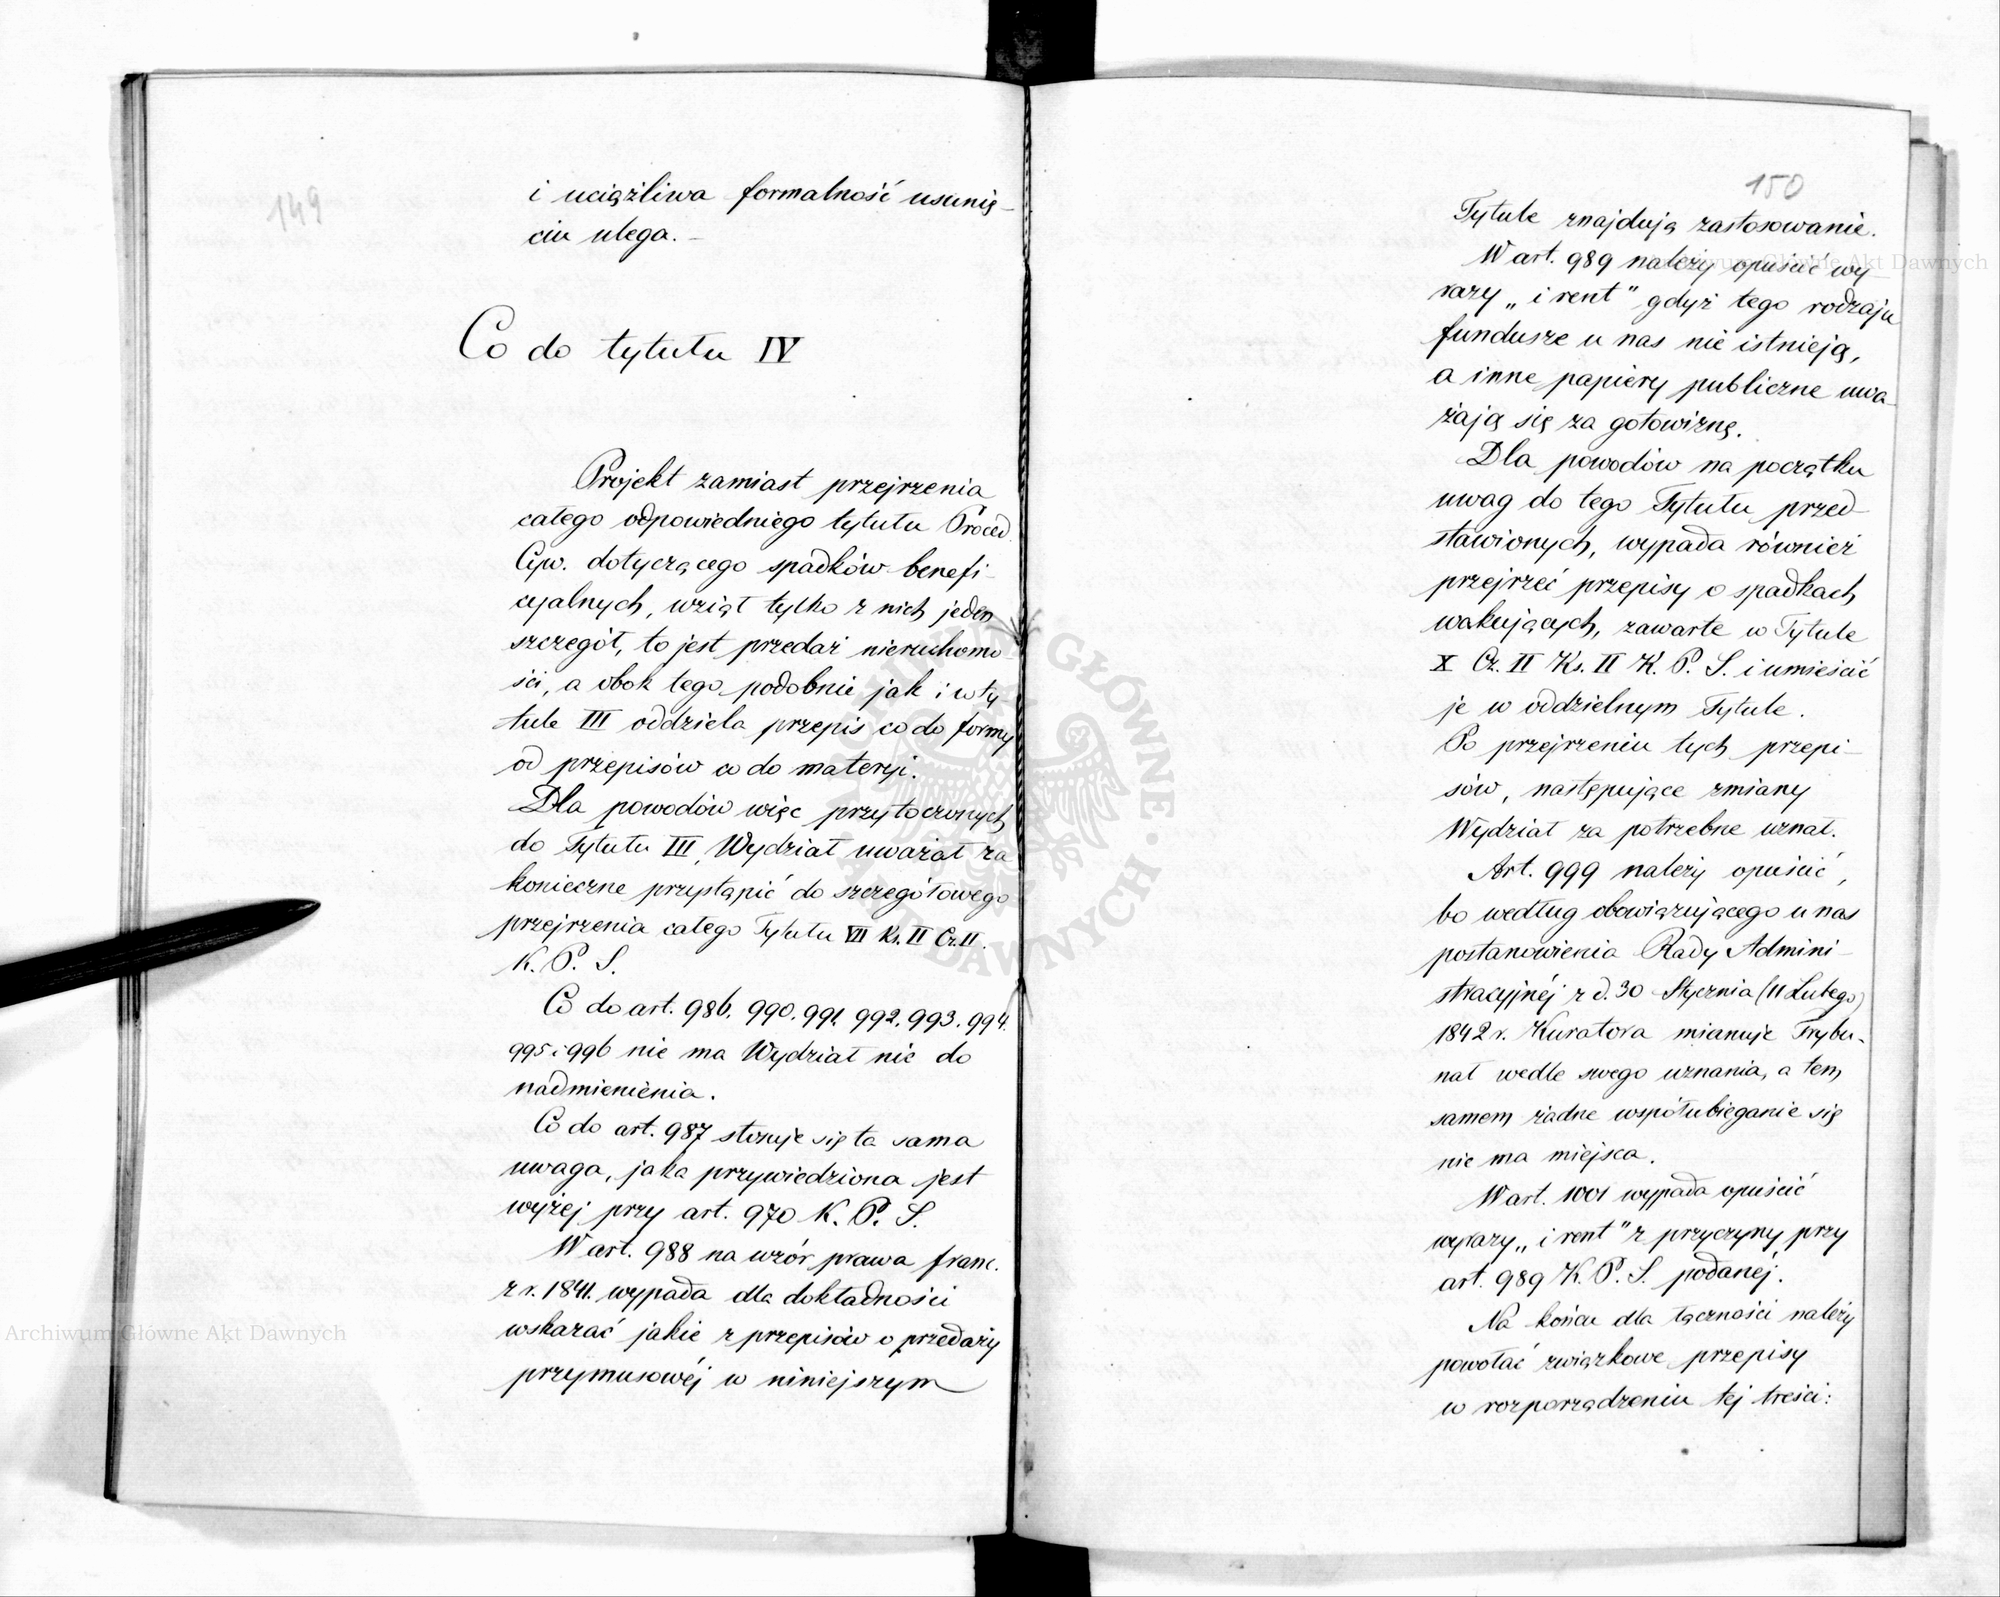 149
i uciążliwa formalność usunię-
ciu ulega. -
Co do tytułu IV
Projekt zamiast przejrzenia
całego odpowiedniego tytułu Proced.
Cyw. dotyczącego spadków benefi-
cyalnych, wziął tylko z nich jeden
szczegół, to jest przedaż nieruchomo
ści, a obok tego podobnie jak i w ty-
tule III oddziela przepis co do formy
od przepisów co do materyi.
Dla powodów więc przytoczonych
do Tytułu III, Wydział uważał za
konieczne przystąpić do szczegółowego
przejrzenia całego Tytułu VII Ks. II Cz. II.
K. P. S.
Co do art. 986. 990. 991. 992. 993. 994.
995 i 996 nie ma Wydział nic do
nadmienienia.
Co do art. 987 stosuje się ta sama
uwaga, jaka przywiedziona jest
wyżej przy art. 970 K. P. S.
W art. 988 na wzór prawa franc.
z r. 1841. wypada dla dokładności
wskazać jakie z przepisów o przedaży
przymusowéj w niniejszym
150
Tytule znajdują zastosowanie.
W art. 989 należy opuścić wy-
razy „i rent" gdyż tego rodzaju
fundusze u nas nie istnieją,
a inne papiery publiczne uwa-
żają się za gotowiznę.
Dla powodów na początku
uwag do tego Tytułu przed-
stawionych, wypada również
przejrzeć przepisy o spadkach
wakujących, zawarte w Tytule
X Cz. II Ks. II K. P. S. i umieścić
je w oddzielnym Tytule.
Po przejrzeniu tych przepi-
sów, następujące zmiany
Wydział za potrzebne uznał.
Art. 999 należy opuścić,
bo według obowiązującego u nas
postanowienia Rady Admini-
stracyjnéj z d. 30 Stycznia (11 Lutego)
1842 r. Kuratora mianuje Trybu-
nał wedle swego uznania, a tem
samem żadne współubieganie się
nie ma miejsca.
W art. 1001 wypada opuścić
wyrazy „i rent" z przyczyny przy
art. 989 K. P. S. podanéj.
Na końcu dla łączności należy
powołać związkowe przepisy
w rozporządzeniu téj treści:
Archiwum Główne Akt Dawnych
Archiwum Główne Akt Dawnych
ARCHIWUM GŁÓWNE AKT DAWNYCH